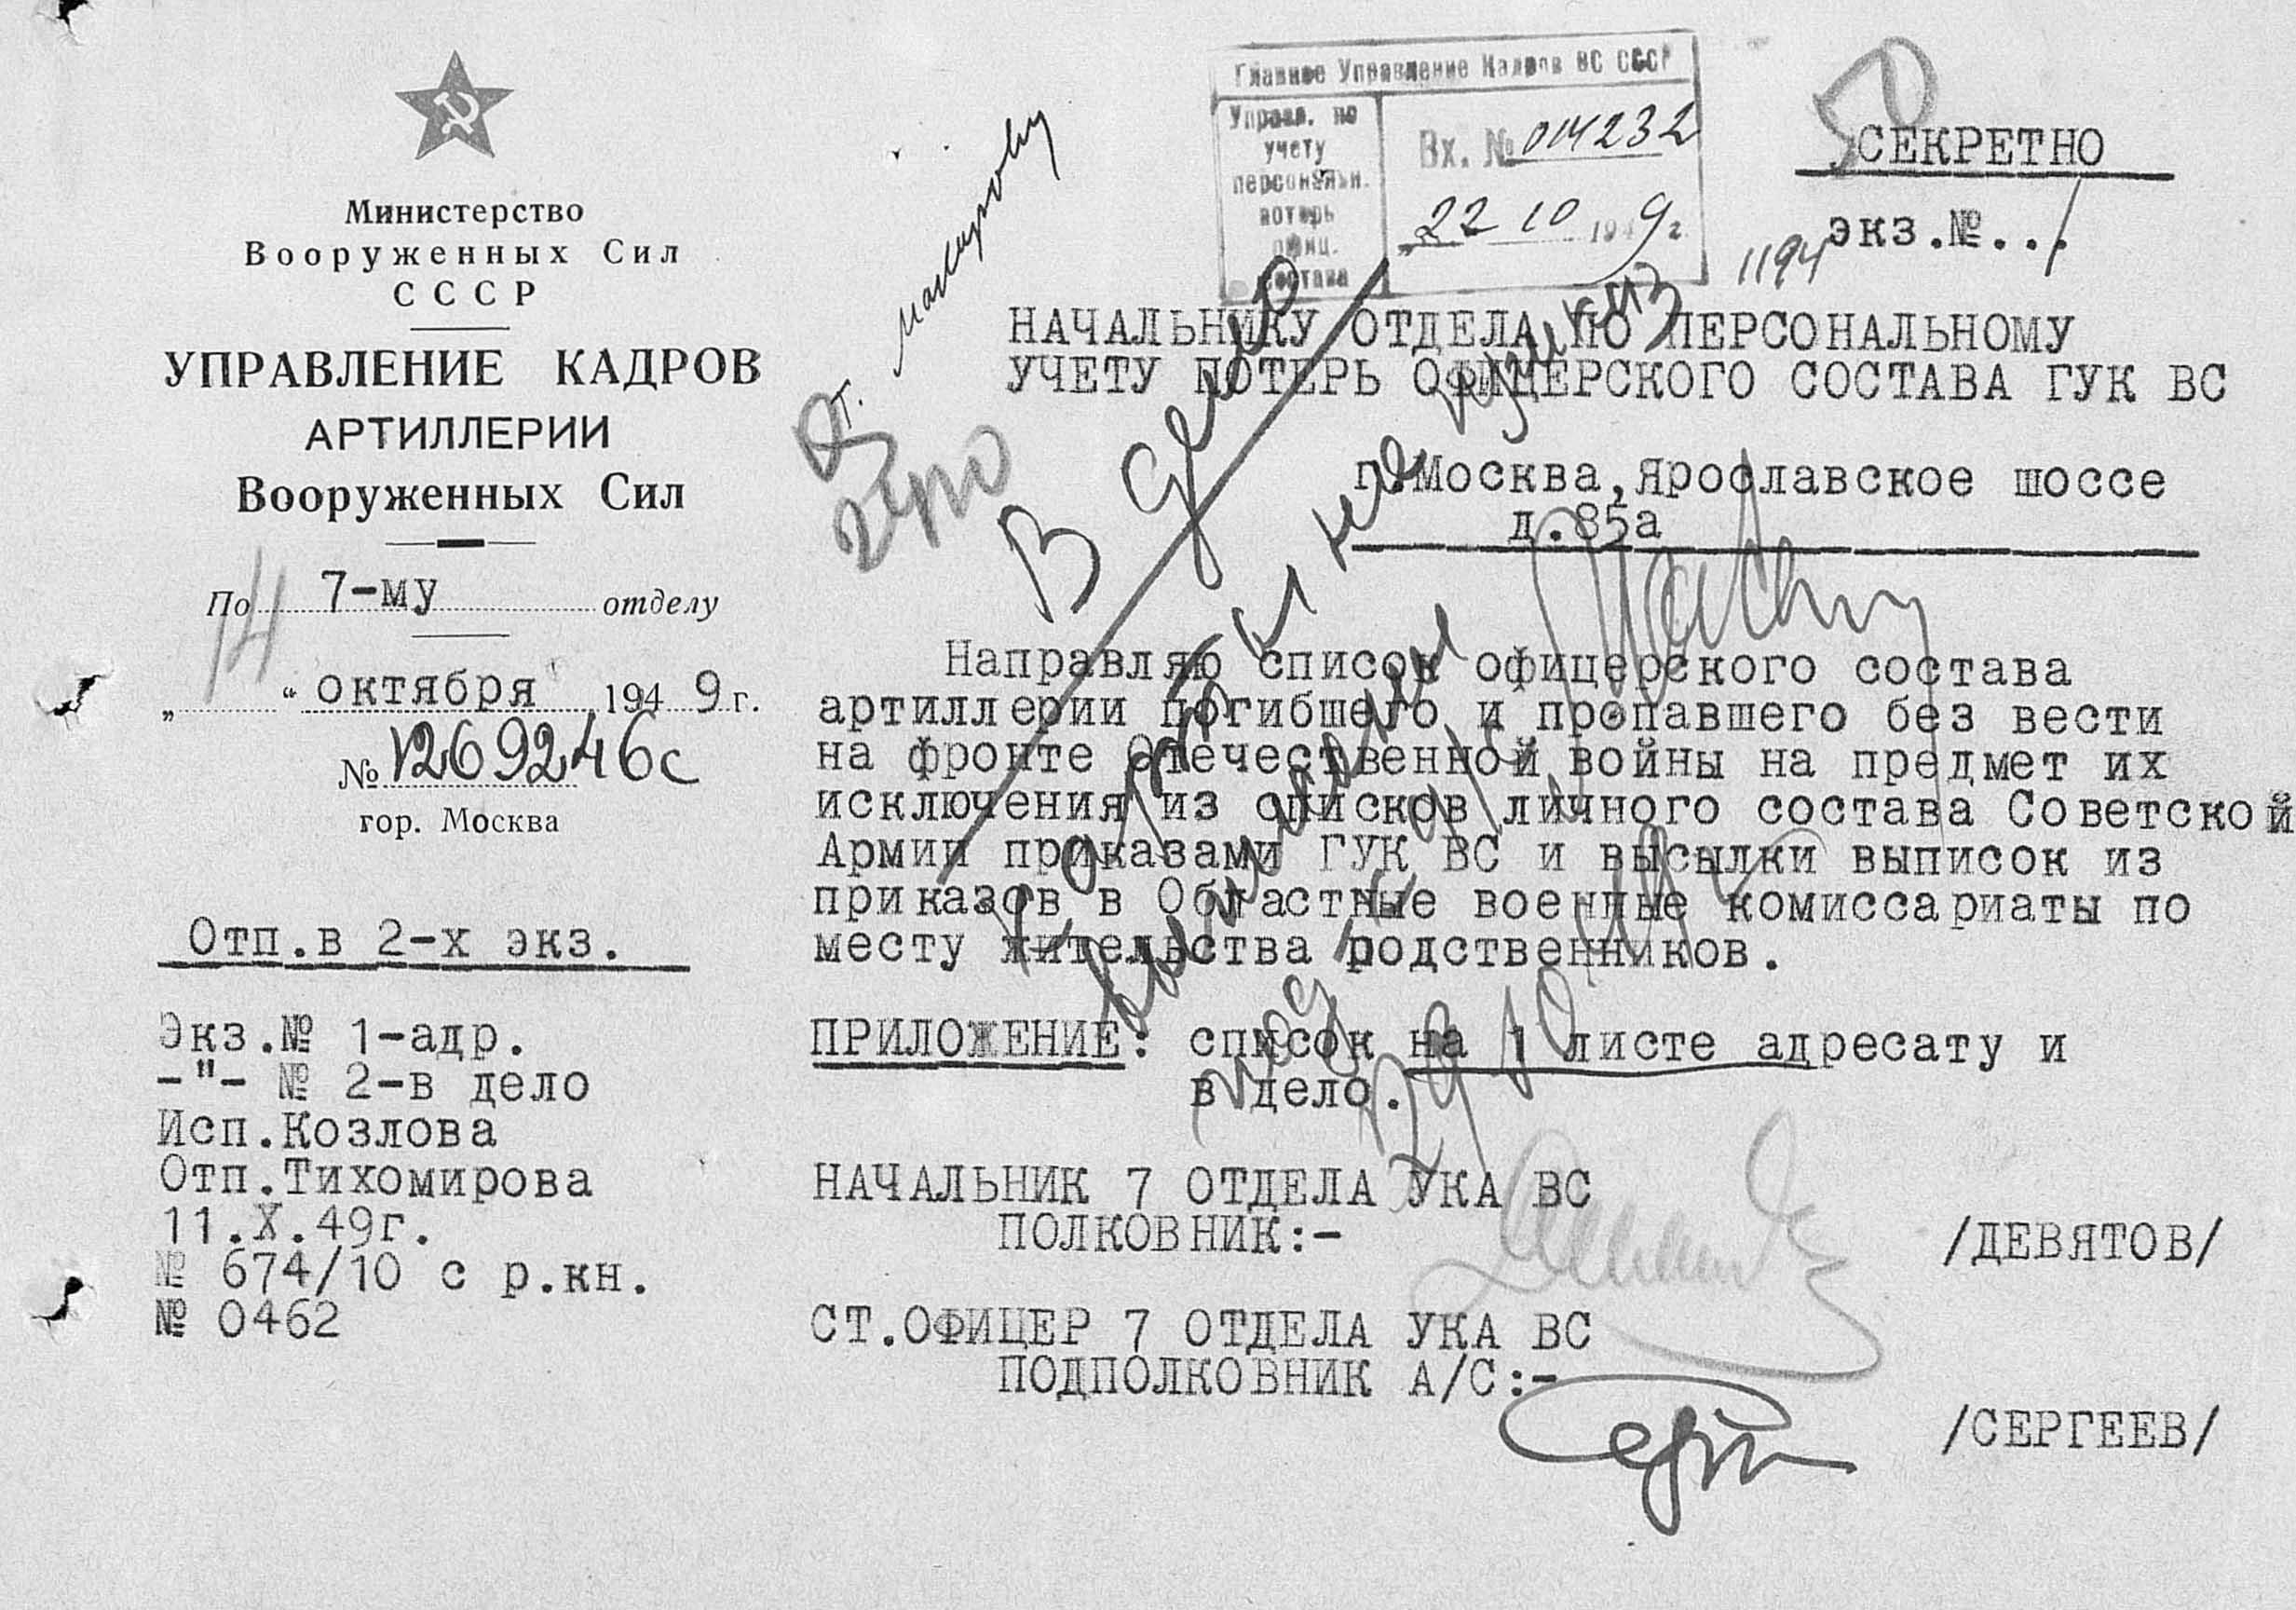 Министерство
Вооруженных Сил
СССР
УПРАВЛЕНИЕ КАДРОВ
АРТИЛЛЕРИИ
Вооруженных Сил
По 7-му отделу
„14“ октября 1949 г.
№ 1269246с
гор. Москва
Отп.в 2-х экз.
Экз.№ 1-адр.
-"- № 2-в дело
Исп.Козлова
Отп.Тихомирова
11.X.49г.
№ 674/10 с р.кн.
№ 0462
Главное Управление Кадров ВС СССР
Управл. по
учету
персональн.
потерь
офиц.
состава
Вх. № 014232
„22 10 1949г.
50
СЕКРЕТНО
экз.№..1
1194
НАЧАЛЬНИКУ ОТДЕЛА ПО ПЕРСОНАЛЬНОМУ
УЧЕТУ ПОТЕРЬ ОФИЦЕРСКОГО СОСТАВА ГУК ВС
г.Москва,Ярославское шоссе
д.85а
В дело
Направляю список офицерского состава
артиллерии погибшего и пропавшего без вести
на фронте Отечественной войны на предмет их
исключения из списков личного состава Советской
Армии приказами ГУК ВС и высылки выписок из
приказов в Областные военные комиссариаты по
месту жительства родственников.
ПРИЛОЖЕНИЕ: список на 1 листе адресату и
в дело.
НАЧАЛЬНИК 7 ОТДЕЛА УКА ВС
ПОЛКОВНИК:-
/ДЕВЯТОВ/
СТ.ОФИЦЕР 7 ОТДЕЛА УКА ВС
ПОДПОЛКОВНИК А/С:-
/СЕРГЕЕВ/